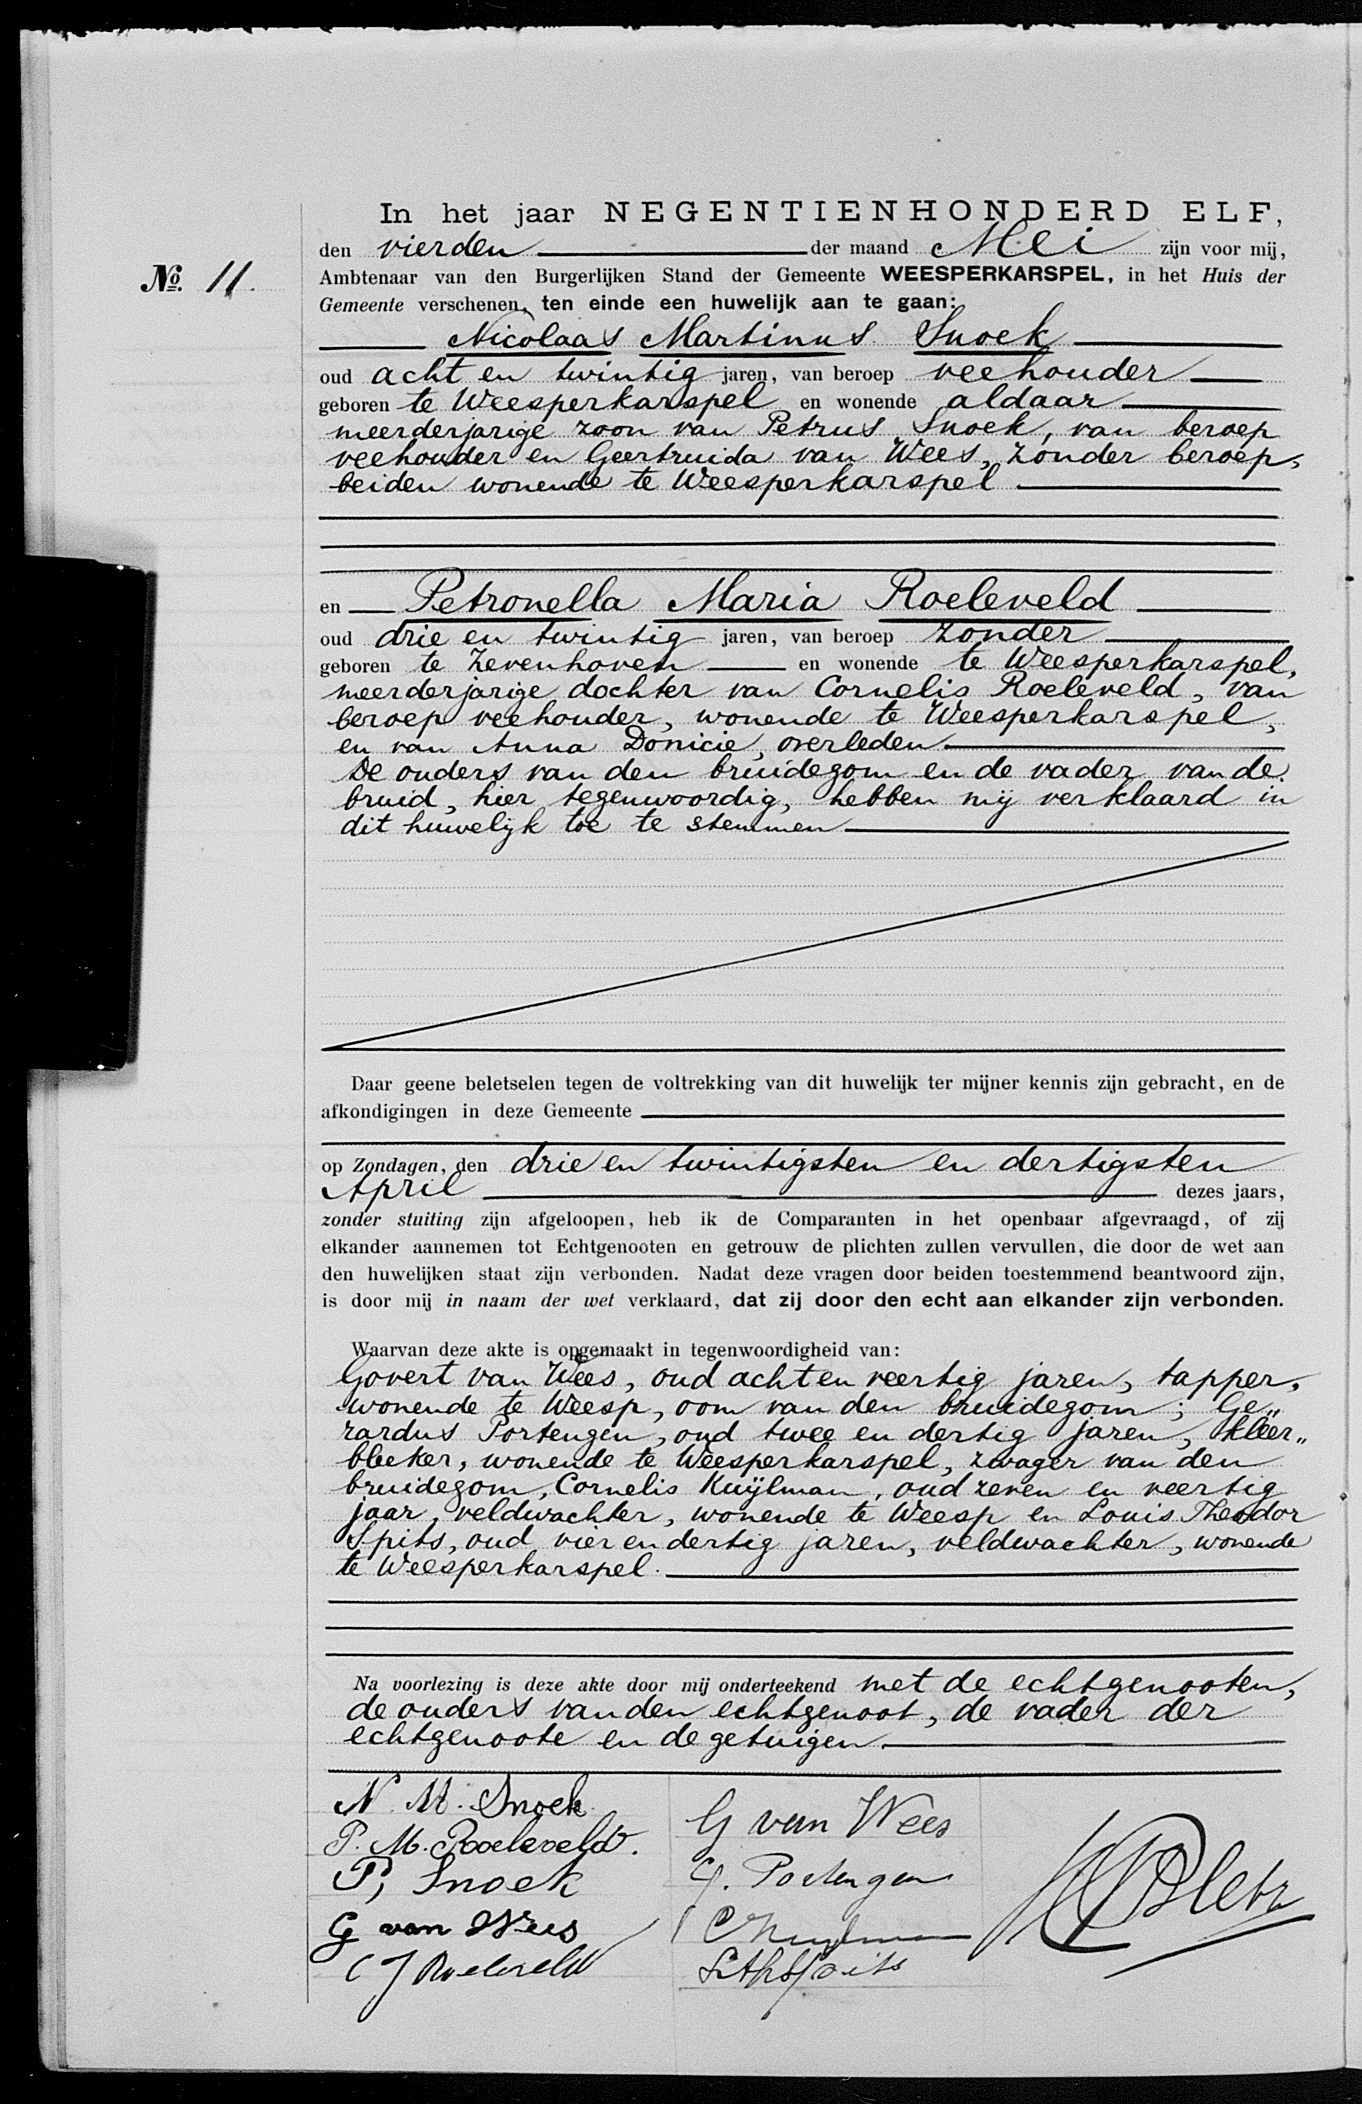 In het jaar NEGENTIENHONDERD ELF,
den vierden der maand Mei zijn voor mij,
No. 11. Ambtenaar van den Burgerlijken Stand der Gemeente WEESPERKARSPEL, in het Huis der
Gemeente verschenen, ten einde een huwelijk aan te gaan:
Nicolaas Martinus Snoek
oud acht en twintig jaren, van beroep veehouder
geboren te Weesperkarspel en wonende aldaar
meerderjarige zoon van Petrus Snoek, van beroep
veehouder en Geertruida van Wees, zonder beroep,
beiden wonende te Weesperkarspel
en Petronella Maria Roeleveld
oud drie en twintig jaren, van beroep zonder
geboren te Zevenhoven en wonende te Weesperkarspel,
meerderjarige dochter van Cornelis Roeleveld, van
beroep veehouder, wonende te Weesperkarspel,
en van Anna Donicie, overleden
De ouders van den bruidegom en de vader van de
bruid, hier tegenwoordig, hebben mij verklaard in
dit huwelijk toe te stemmen
Daar geene beletselen tegen de voltrekking van dit huwelijk ter mijner kennis zijn gebracht, en de
afkondigingen in deze Gemeente
op Zondagen, den drie en twintigsten en dertigsten
April dezes jaars,
zonder stuiting zijn afgeloopen, heb ik de Comparanten in het openbaar afgevraagd, of zij
elkander aannemen tot Echtgenooten en getrouw de plichten zullen vervullen, die door de wet aan
den huwelijken staat zijn verbonden. Nadat deze vragen door beiden toestemmend beantwoord zijn,
is door mij in naam der wet verklaard, dat zij door den echt aan elkander zijn verbonden.
Waarvan deze akte is opgemaakt in tegenwoordigheid van:
Govert van Wees, oud acht en veertig jaren, tapper,
wonende te Weesp, oom van den bruidegom; Ge„
rardus Portengen, oud twee en dertig jaren, kleer„
bleeker, wonende te Weesperkarspel, zwager van den
bruidegom, Cornelis Kuÿlman, oud zeven en veertig
jaar, veldwachter, wonende te Weesp en Louis Theodor
Spits, oud vier en dertig jaren, veldwachter, wonende
te Weesperkarspel.
Na voorlezing is deze akte door mij onderteekend met de echtgenooten,
de ouders van den echtgenoot, de vader der
echtgenoote en de getuigen.
N. M. Snoek
P. M. Roeleveld.
P, Snoek
G van Wees
C J Roeleveld
G van Wees
G. Portengen
C Kuylman
L Th Spits